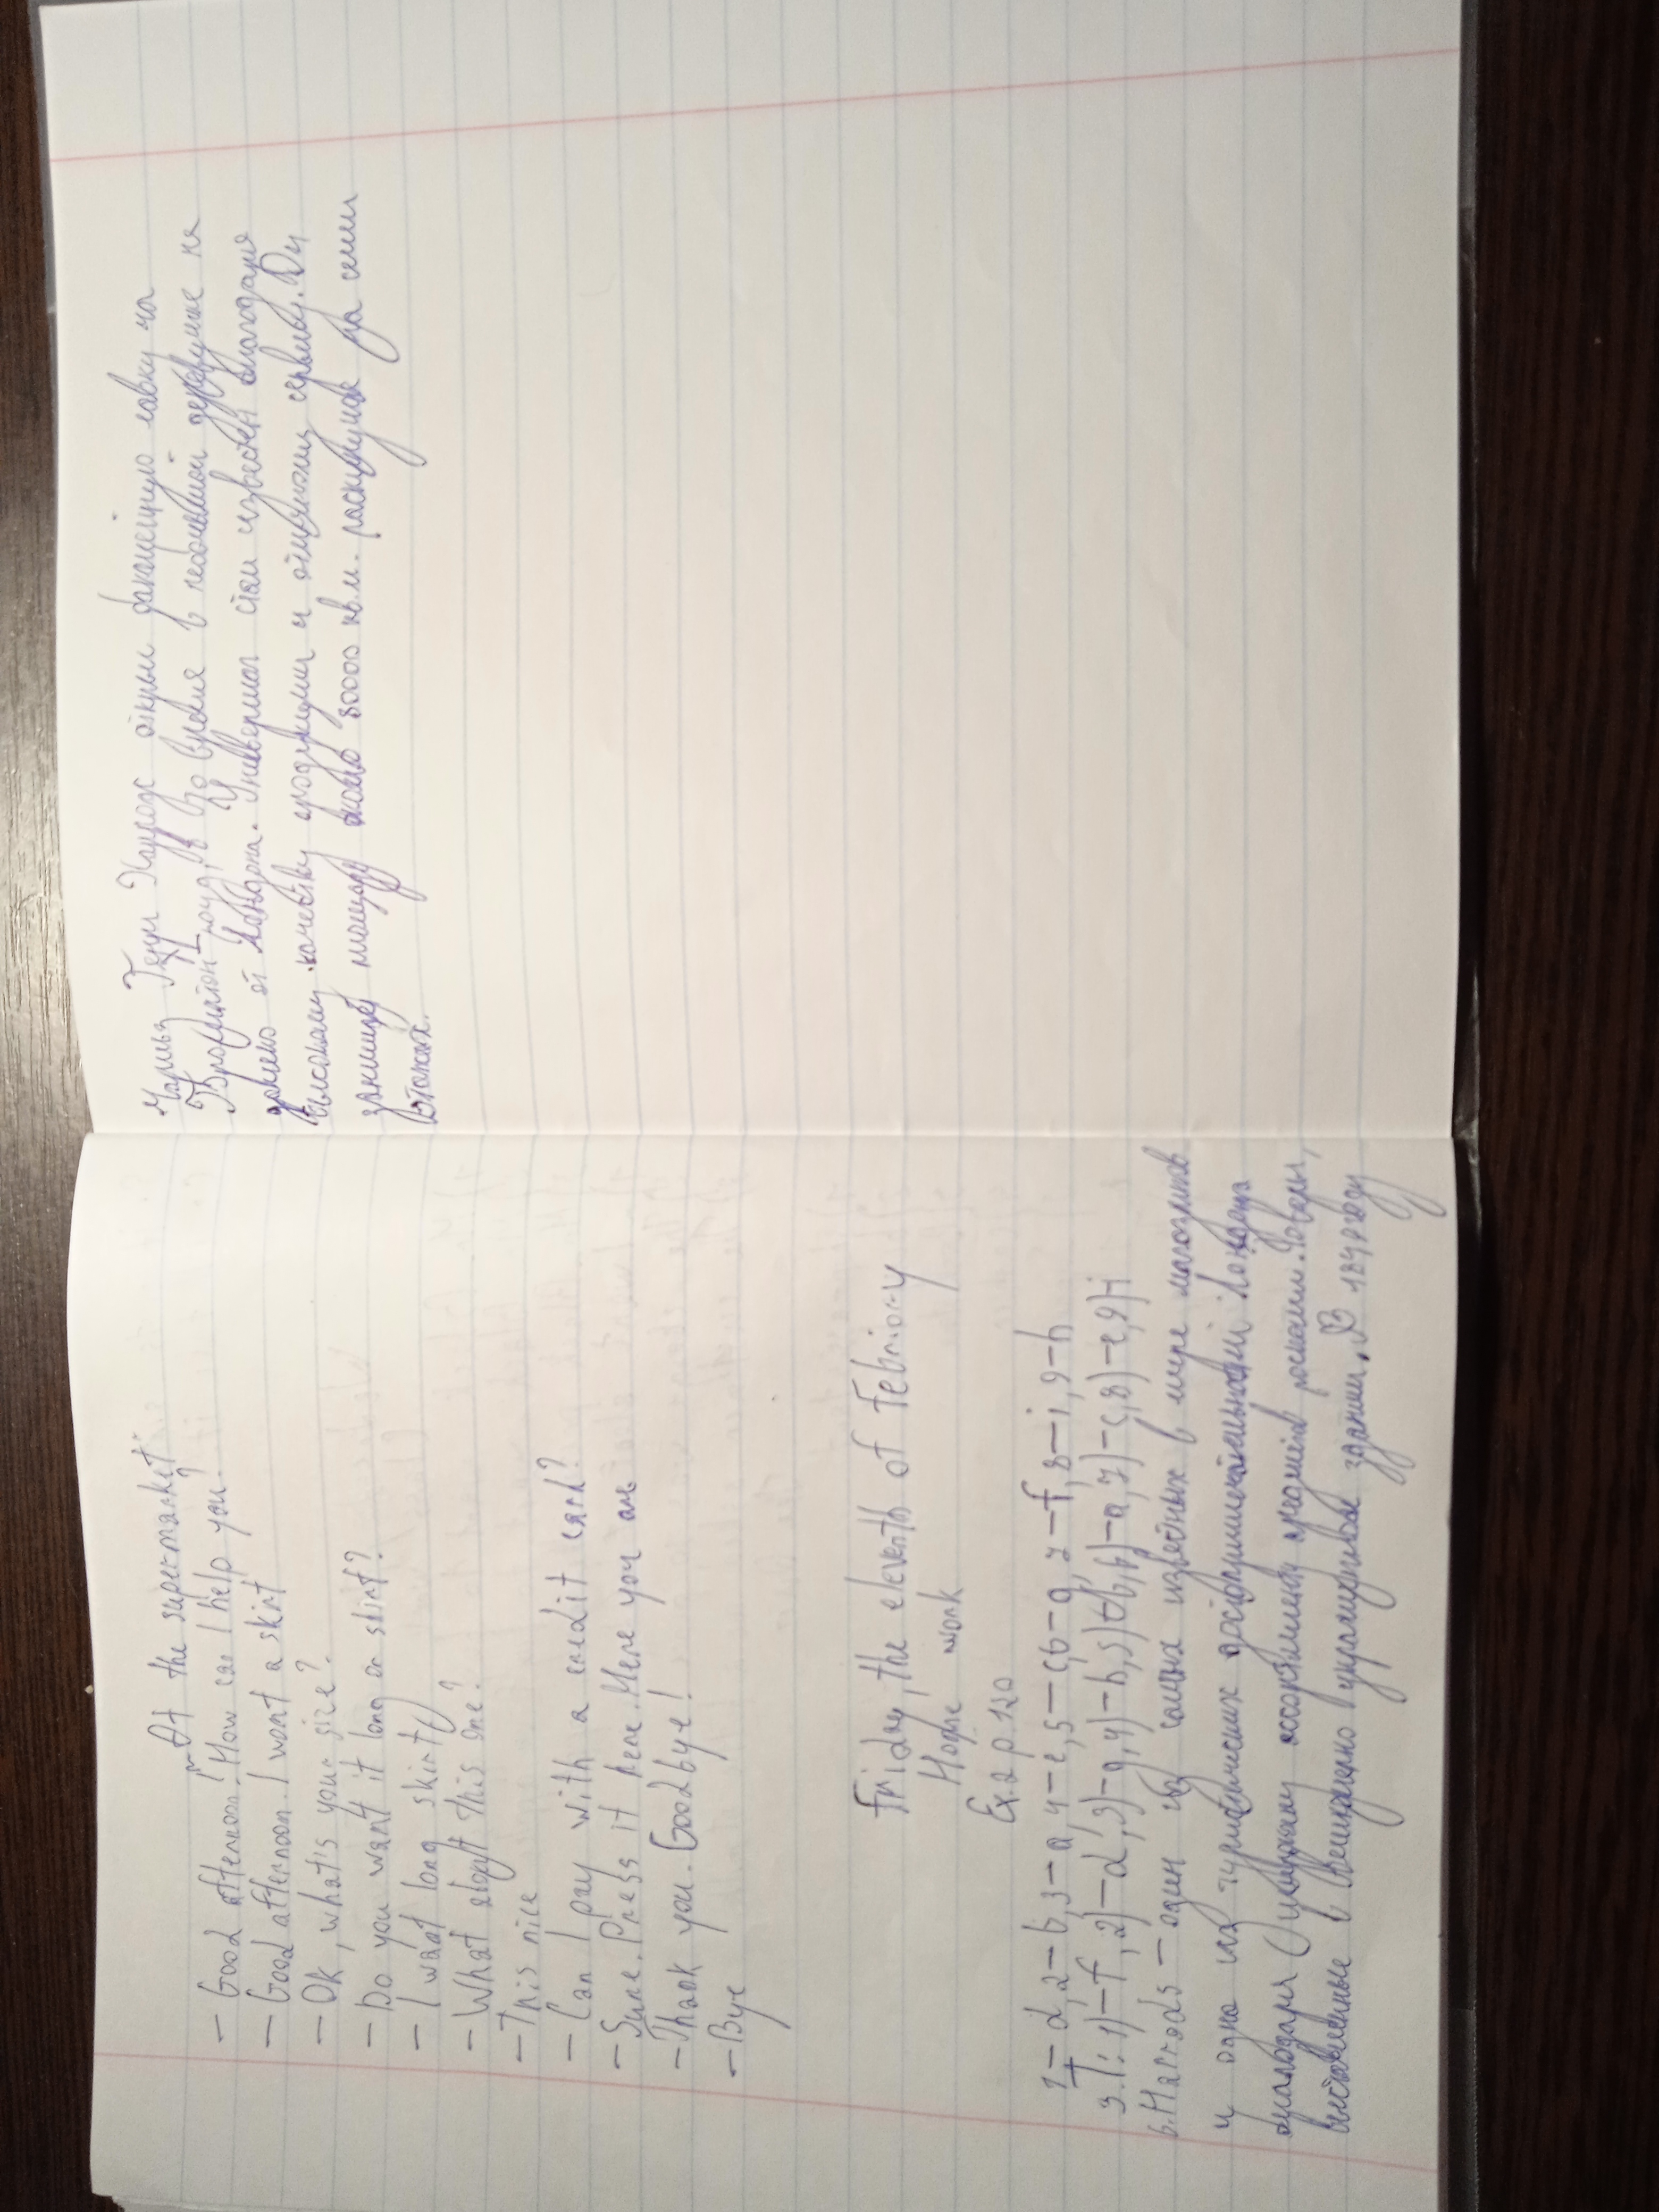 "At the supermarket"
— Good afternoon! How can I help you?
— Good afternoon. I want a skirt
— Ok, what's your size?
— Do you want it long or skirt?
— I want long skirt
— What about this one?
— This nice
— Can I pay with a credit card?
— Sure. Press it here. Here you are
— Thank you. Goodbye!
— Bye
Friday, the eleventh of February
Home work
Ex. 2 p. 120
1 — d, 2 — b, 3 — a, 4 — e, 5 — c, 6 — g, 7 — f, 8 — i, 9 — h
3. T: 1) — f, 2) — d, 3) — g, 4) — h, 5) b, 6) — a, 7) — c, 8) — e, 9) i
6. Harrods — один из самых известных в мире магазинов
и одна из туристических достопримечательностей Лондона
благодаря широкому ассортименту предметов роскоши. Товары,
выставленные в великолепно украшенном здании. В 1849 году
Чарльз Генри Харродс открыл бакалейную лавку на
Бромптон-роуд, в то время в небольшой деревушке не
далеко от Лондона. Универмаг стал известен благодаря
высокому качеству продукции и отличному сервису. Он
занимает площадь около 80000 кв.м. раскинулся на семи
этажах.